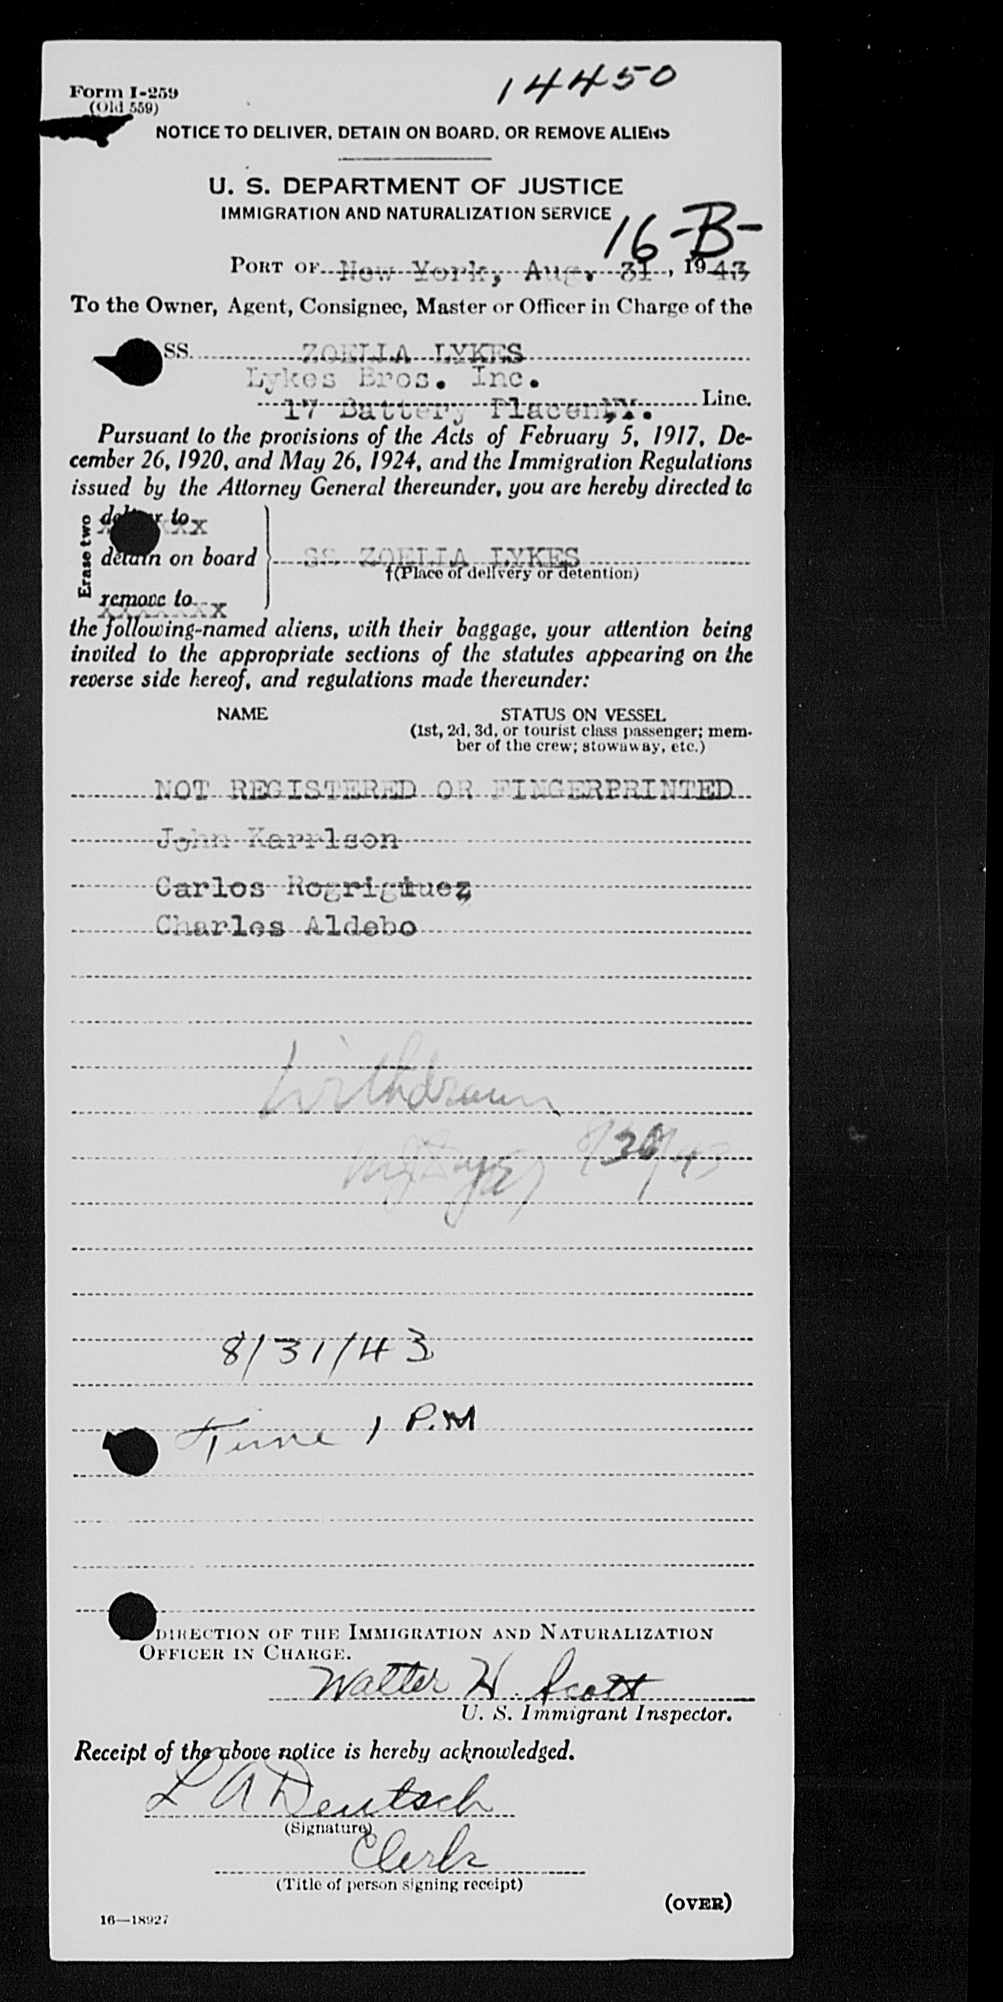 Form I-259
14450
(Old 559)
NOTICE TO DELIVER, DETAIN ON BOARD, OR REMOVE ALIENS
U. S. DEPARTMENT OF JUSTICE
IMMIGRATION AND NATURALIZATION SERVICE
16-B-
PORT OF New York, Aug. 31, 1943
To the Owner, Agent, Consignee, Master or Officer in Charge of the
SS. ZOELLA LYKES
Lykes Bros. Inc.
17 Battery Place N.Y. Line.
Pursuant to the provisions of the Acts of February 5, 1917, De-
cember 26, 1920, and May 26, 1924, and the Immigration Regulations
issued by the Attorney General thereunder, you are hereby directed to
Erase two
deliver to
detain on board SS ZOELLA LYKES
†(Place of delivery or detention)
remove to
the following-named aliens, with their baggage, your attention being
invited to the appropriate sections of the statutes appearing on the
reverse side hereof, and regulations made thereunder:
NAME STATUS ON VESSEL
(1st, 2d, 3d, or tourist class passenger; mem-
ber of the crew; stowaway, etc.)
NOT REGISTERED OR FINGERPRINTED
John Karrlson
Carlos Rogriguez
Charles Aldebo
Withdrawn
8/30/43
8/31/43
Time 1 P.M
DIRECTION OF THE IMMIGRATION AND NATURALIZATION
OFFICER IN CHARGE.
Walter H. Scott
U. S. Immigrant Inspector.
Receipt of the above notice is hereby acknowledged.
L A Deutsch
(Signature)
Clerk
(Title of person signing receipt)
(OVER)
16—18927